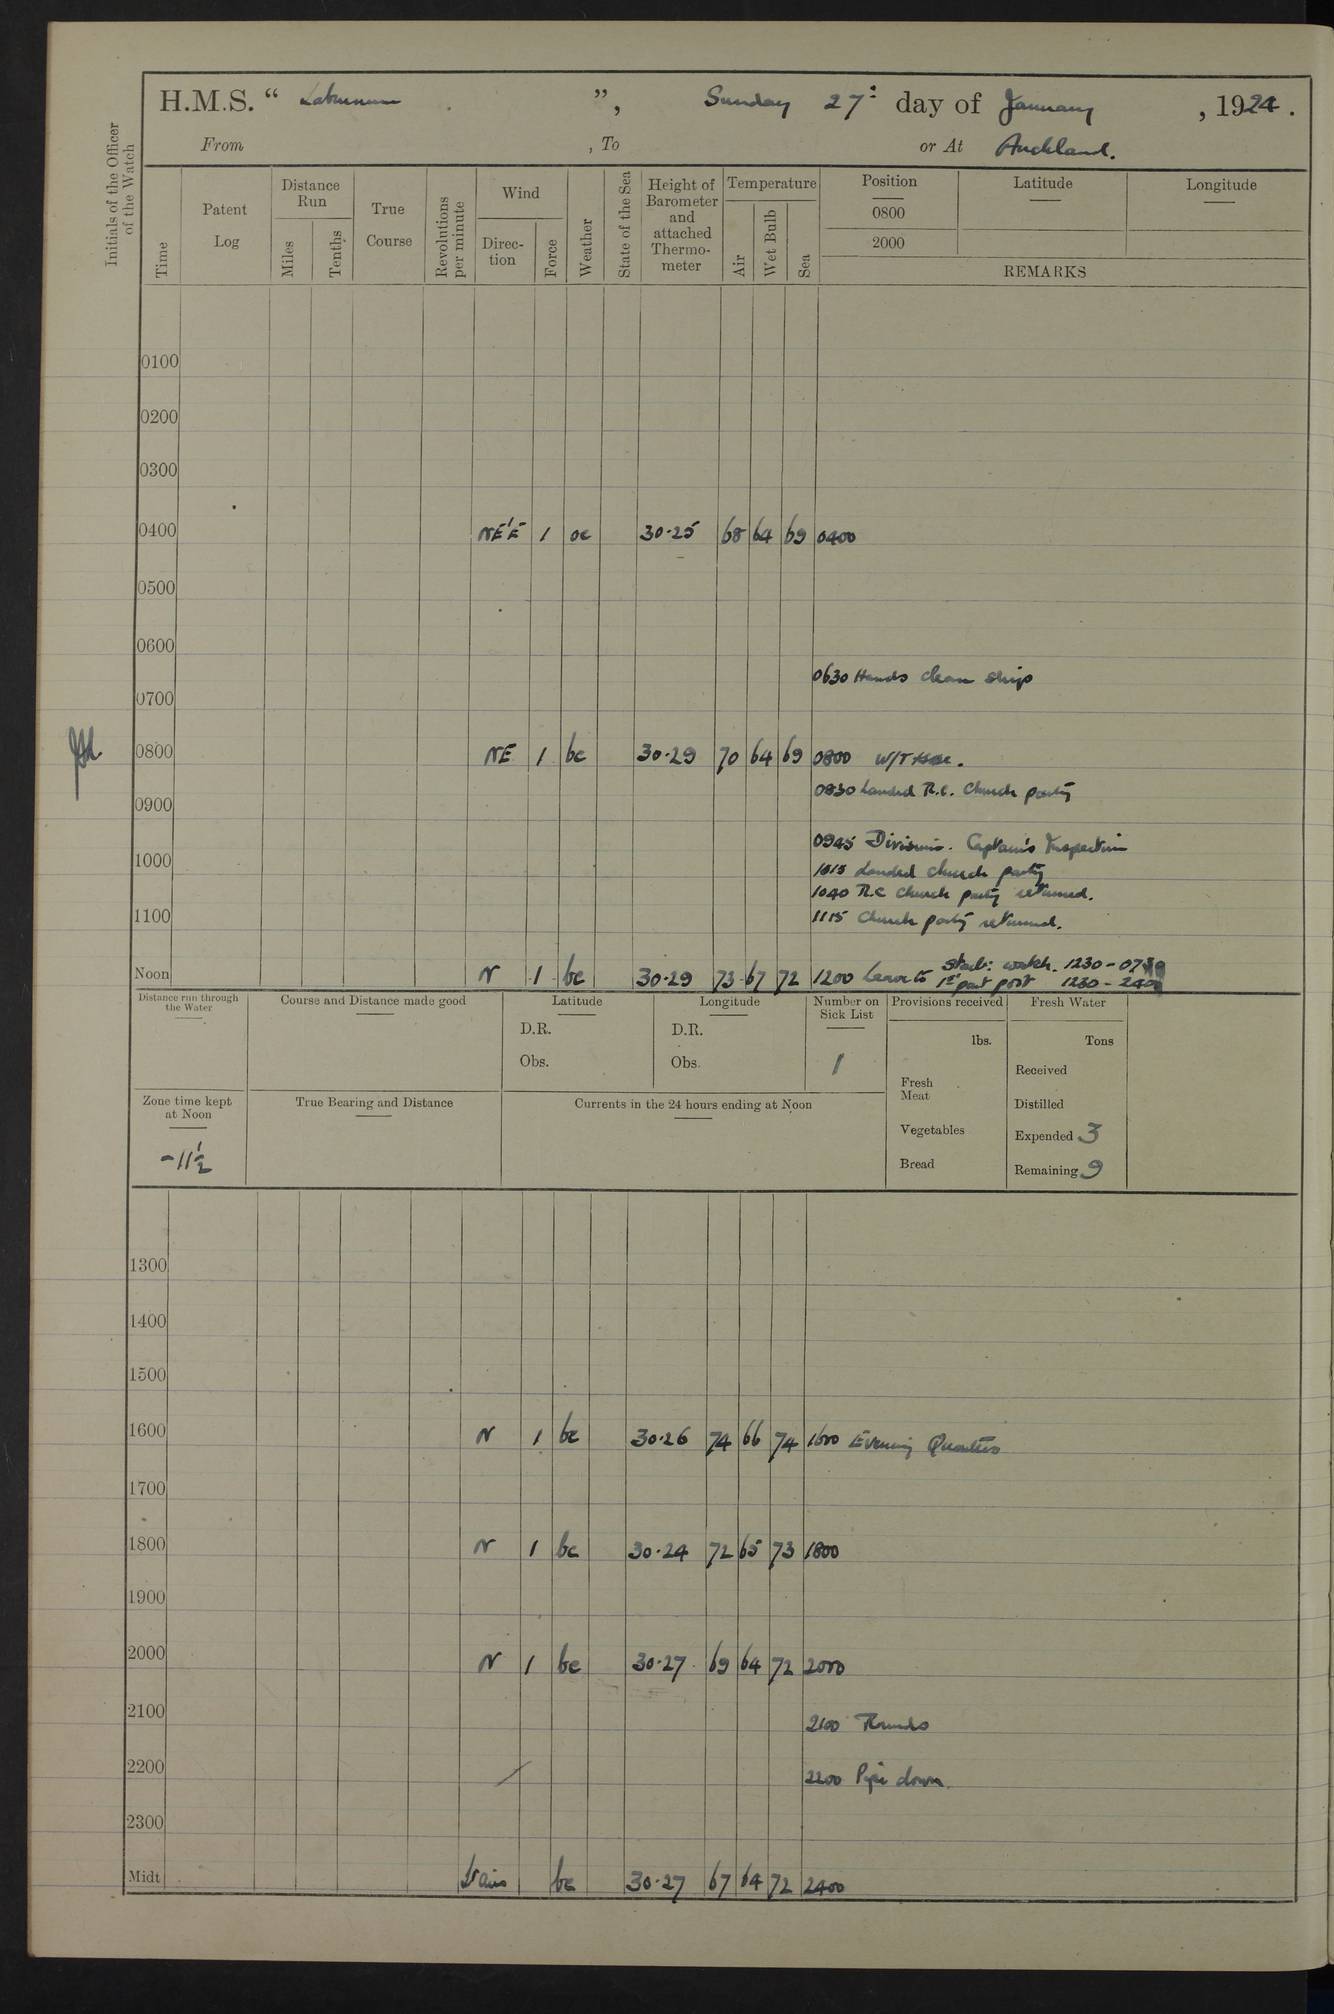 H.M.S. “ Laburnum ”, Sunday 27: day of January, 1924.
From , To or At Auckland.
Initials of the Officer of the Watch
Time
Patent Log
Distance Run
Miles
Tenths
True Course
Revolutions per minute
Wind
Direc-tion
Force
Weather
State of the Sea
Height of Barometer and attached Thermo-meter
Temperature
Air
Wet Bulb
Sea
Position
0800
2000
Latitude
Longitude
REMARKS
0100
0200
0300
0400 NE'E 1 oc 30·25 68 64 69 0400
0500
0600
0630 Hands clean ship
0700
0800 NE 1 bc 30·29 70 64 69 0800 W/T
0830 Landed R.C. Church party
0900
0945 Divisions. Captain's Inspection
1000
1015 Landed church party
1040 R.C Church party returned.
1100
1115 Church party returned.
Noon N 1 bc 30·29 73 67 72 1200 Leave to Starb: watch. 1230 - 0730
1st part port 1230 - 2400
Distance run through the Water
Course and Distance made good
Latitude
D.R.
Obs.
Longitude
D.R.
Obs.
Number on Sick List
1
Provisions received
lbs.
Fresh Meat
Vegetables
Bread
Fresh Water
Tons
Received
Distilled
Expended 3
Remaining 9
Zone time kept at Noon
-11½
True Bearing and Distance
Currents in the 24 hours ending at Noon
1300
1400
1500
1600 N 1 bc 30·26 74 66 74 1600 Evening Quarters
1700
1800 N 1 bc 30·24 72 65 73 1800
1900
2000 N 1 bc 30·27 69 64 72 2000
2100
2100 Rounds
2200
2200 Pipe down
2300
Midt bc 30·27 67 64 72 2400